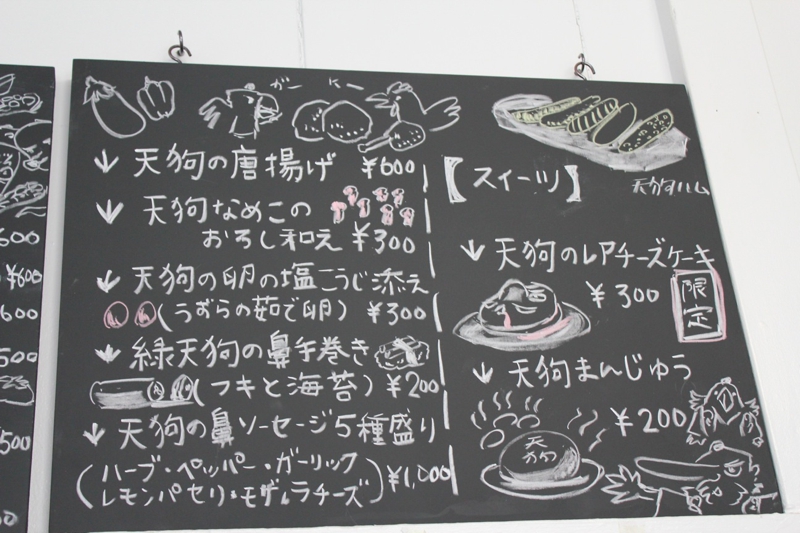 600
¥600
600
500
500
ガー K
天狗の唐揚げ ¥600
天狗なめこの
おろし和え ¥300
天狗の卵の塩こうじ添え
(うずらの茹で卵) ¥300
緑天狗の鼻手巻き
(フキと海苔) ¥200
天狗の鼻ソーセージ5種盛り
(ハーブ・ペッパー・ガーリック
レモンパセリ・モザレラチーズ) ¥1,000
【スイーツ】
天狗ハム
天狗のレアチーズケーキ
¥300 限定
天狗まんじゅう
¥200
天狗